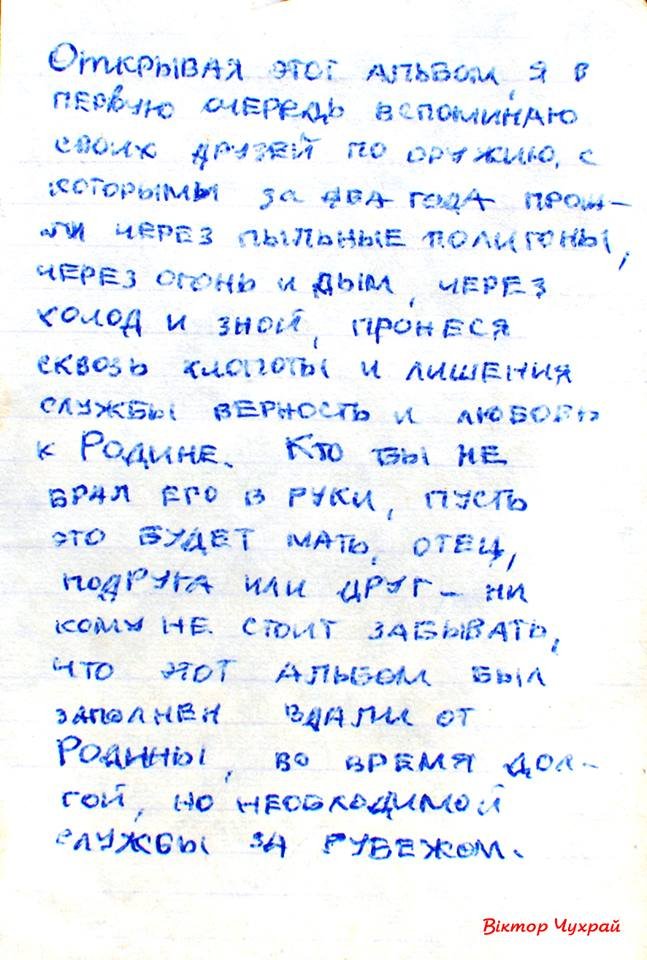 Открывая этот альбом, я в
первую очередь вспоминаю
своих друзей по оружию, с
которымы за два года прош-
ли через пыльные полигоны,
через огонь и дым, через
холод и зной, пронеся
сквозь хлопоты и лишения
службы верность и любовь
к Родине. Кто бы не
брал его в руки, пусть
это будет мать, отец,
подруга или друг – ни
кому не стоит забывать,
что этот альбом был
заполнен вдали от
Родины, во время дол-
гой, но необходимой
службы за рубежом.
Віктор Чухрай